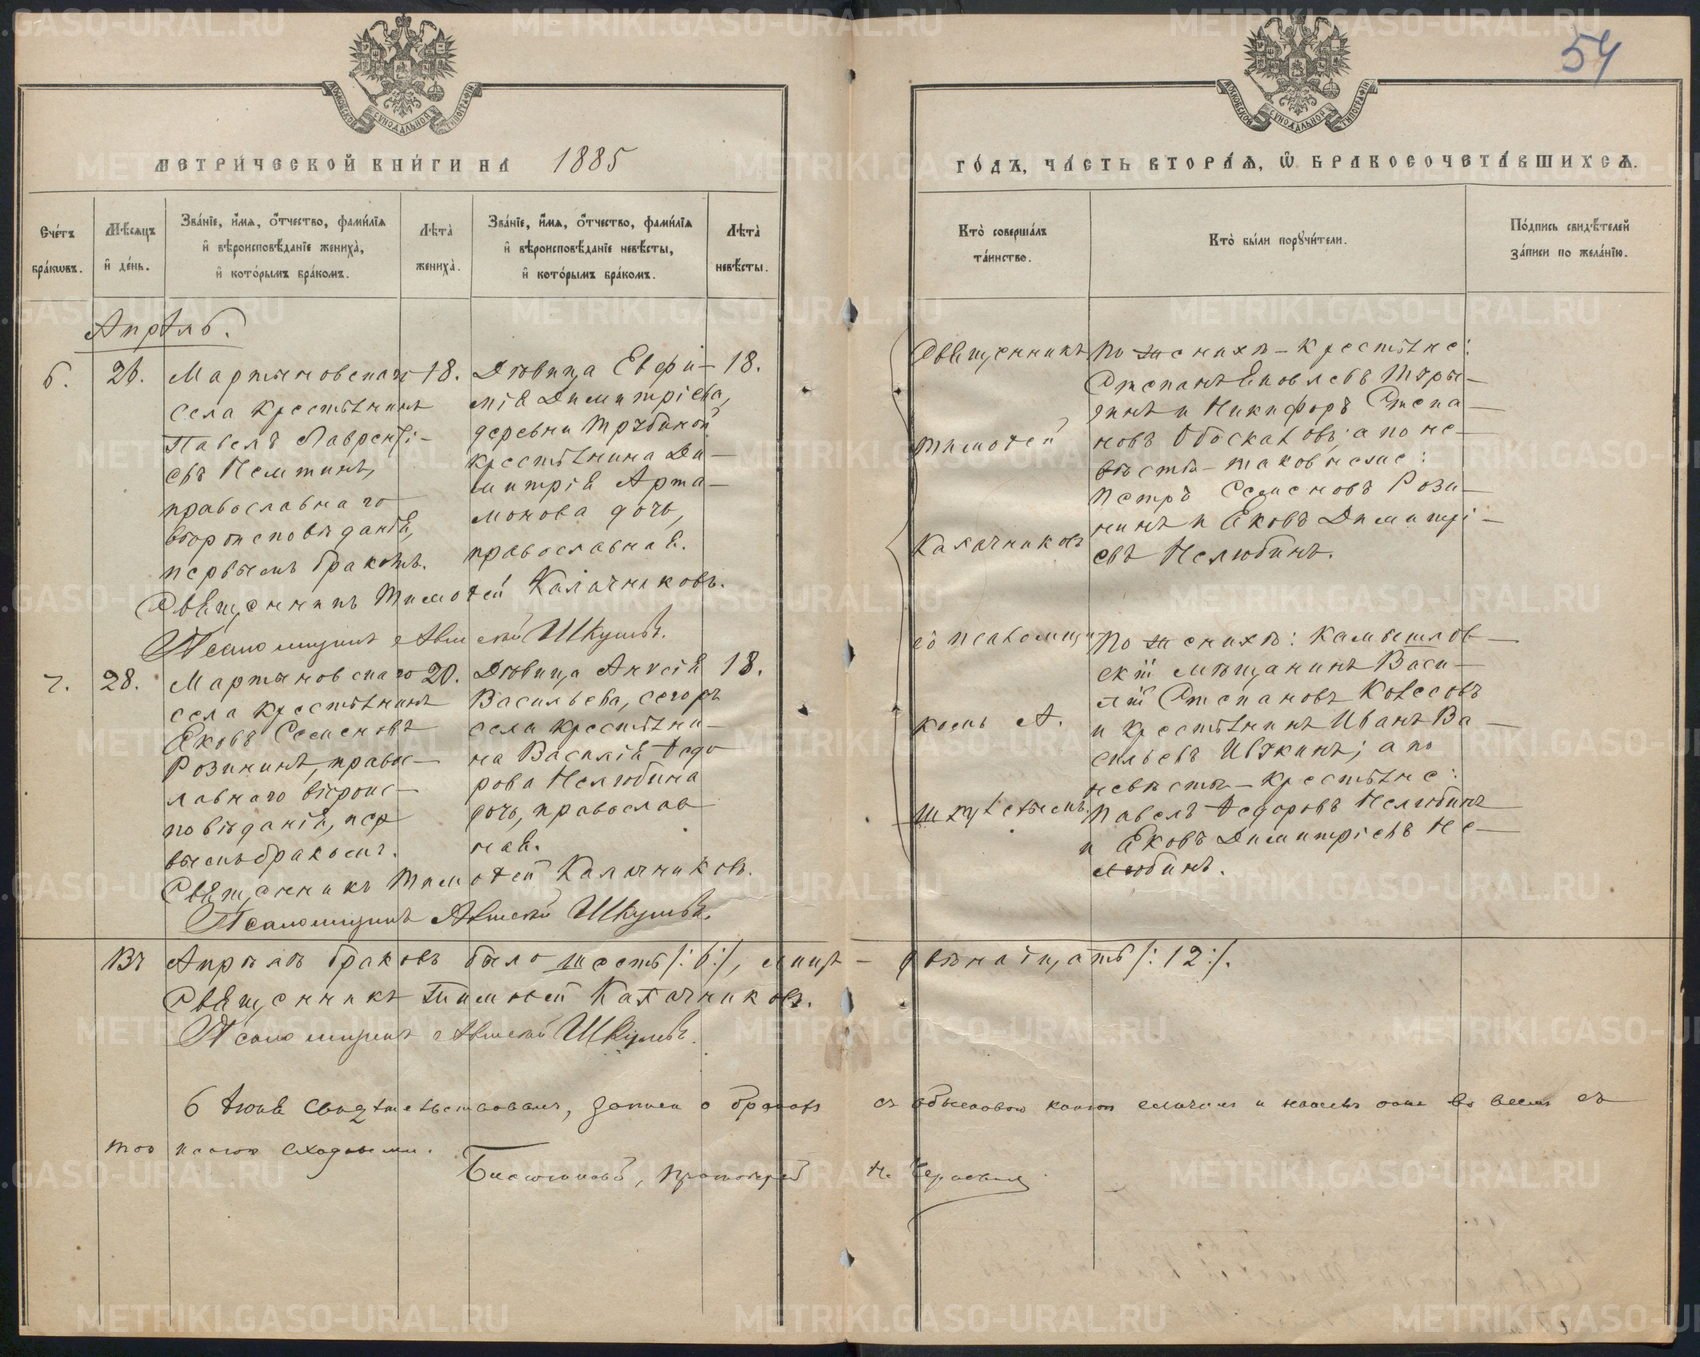 54
МЕТРИЧЕСКОЙ КНИГИ НА 1885
ГОДЪ, ЧАСТЬ ВТОРАЯ, Ѡ БРАКОСОЧЕТАВШИХСЯ.
Счетъ браковъ.
Мѣсяцъ и день.
Званіе, имя, отчество, фамилія и вѣроисповѣданіе жениха, и которымъ бракомъ.
Лѣта жениха.
Званіе, имя, отчество, фамилія и вѣроисповѣданіе невѣсты, и которымъ бракомъ.
Лѣта невѣсты.
Кто совершалъ таинство.
Кто были поручители.
Подпись свидѣтелей записи по желанію.
Апрѣль.
6.
26.
Мартыновскаго
села крестьянинъ
Павелъ Лаврентi-
евъ
православнаго
вѣроисповѣданія,
первымъ бракомъ.
18.
Дѣвица Евфи-
мія Димитріева,
деревни
крестьянина Ди-
митрія Арта-
монова дочь,
православная.
18.
Священникъ
Тимоѳей
Калачниковъ
По женихѣ - крестьяне:
Степанъ Яковлевъ
и Никифоръ Степа-
новъ а по не-
вѣстѣ - таковыеже:
Петръ Семеновъ Рози-
нинъ и Яковъ Димитрі-
евъ Нелюбинъ.
Священникъ Тимоѳей Калачниковъ.
Псаломщикъ Алексѣй Шкулевъ.
7.
28.
Мартыновскаго
села крестьянинъ
Яковъ Семеновъ
Розининъ, правос-
лавнаго вѣроис-
повѣданія, пер
вымъ бракомъ.
20.
Дѣвица Анисія
Васильева, сегожъ
села крестьяни-
на Василія Ѳедо
рова Нелюбина
дочь, православ
ная.
18.
съ псаломщи
комъ А.
Шкулевымъ.
По женихѣ: Камышлов-
скій мѣщанинъ Васи-
лій Степановъ
и крестьянинъ Иванъ Ва-
сильевъ Ивкинъ; а по
невѣстѣ - крестьяне:
Павелъ Ѳедоровъ Нелюбинъ
и Яковъ Димитріевъ Не-
любинъ.
Священникъ Тимоѳей Калачниковъ.
Псаломщикъ Алексѣй Шкулевъ.
Въ Апрѣлѣ браковъ было шесть /:6:/, лицъ - двѣнадцать /:12:/.
Священникъ Тимоѳей Калачниковъ.
Псаломщикъ Алексѣй Шкулевъ.
6 Іюня свидѣтельствовалъ, записи о бракахъ съ обыскною книгою сличалъ и нашелъ оныя во всемъ съ
тою книгою сходными.
Благочинный, протоіерей
METRIKI.GASO-URAL.RU